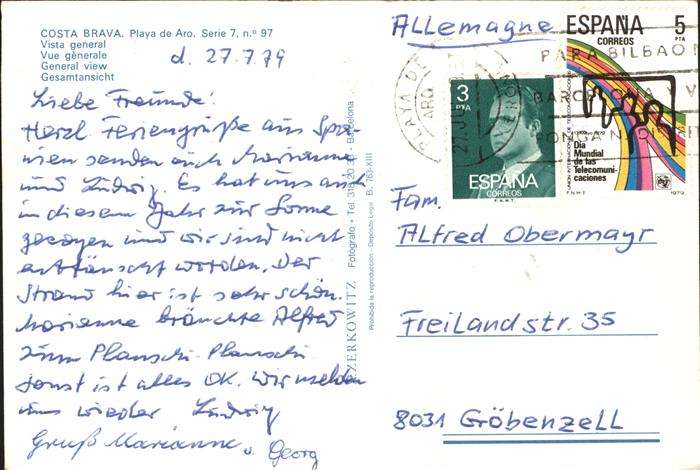 COSTA BRAVA. Playa de Aro. Serie 7, n.º 97
Vista general
Vue gènerale
General view
Gesamtansicht
d. 27.7.79
Liebe Freunde!
Herzl Feriengrüße aus Spa-
nien senden euch Marianne
und Ludwig. Es hat uns auch
in diesem Jahr zur Sonne
gezogen und wir sind nicht
enttäuscht worden. Der
Strand hier ist sehr schön.
Marianne bräuchte Alfred
zum Planschi-Planschi
sonst ist alles OK. Wir melden
uns wieder Ludwig
Gruß Marianne u. Georg
ZERKOWITZ Fotógrafo - Tel. - Barcelona
Prohibida la reproducción - Depósito Legal B. XIII
ALLemagne
ESPAÑA 5
CORREOS PTA
PARA BILBAO
BARCELONA Y V
PLAYA DE ARO
3
PTA
ESPAÑA
CORREOS
F.N.M.T.
Dia
Mundial
de las
Telecomuni-
caciones
F.N.M.T. 1979
Fam.
ALfred Obermayr
FreiLandstr. 35
8031 GröbenzeLL